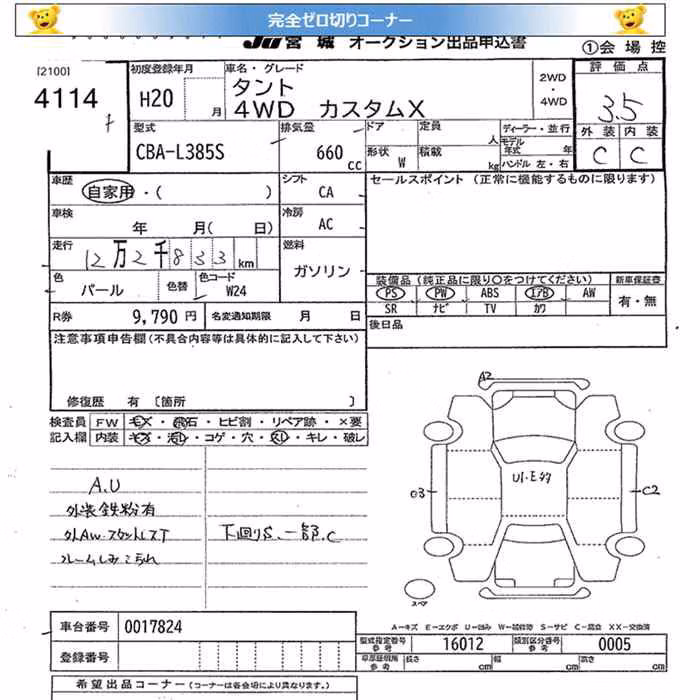 完全ゼロ切りコーナー
JU 宮城 オークション出品申込書
①会場控
[2100]
4114
初度登録年月
H20 月
車名・グレード
タント
4WD カスタムX
2WD
・
4WD
評価点
3.5
外装 内装
C C
型式
CBA-L385S
排気量
660 cc
ドア 定員 人
形状 W 積載 kg
ディーラー・並行
モデル年式 年
ハンドル 左・右
車歴
自家用・( )
シフト
CA
セールスポイント (正常に機能するものに限ります)
車検
年 月( 日)
冷房
AC
走行
12万2千833km
燃料
ガソリン
色
パール
色替
色コード
W24
装備品(純正品に限り○をつけてください)
新車保証書
PS PW ABS エアB AW
SR ナビ TV カワ
有・無
R券 9,790円 名変通知期限 月 日
後日品
注意事項申告欄(不具合内容等は具体的に記入して下さい)
修復歴 有 〔箇所 〕
検査員 FW キズ・飛石・ヒビ割・リペア跡・×要
記入欄 内装 キズ・汚レ・コゲ・穴・スレ・キレ・破レ
A.U
外装鉄粉有
外AW・スタットレスT
下廻りS、一部C
A2
U1・E多
C2
スペア
A-キズ E-エクボ U-凹み W-補修跡 S-サビ C-腐食 XX-交換済
車台番号 0017824
登録番号
型式指定番号 参考 16012 類別区分番号 参考 0005
参考 長さ cm 幅 cm 高さ cm
希望出品コーナー(コーナーは各会場により異なります。)